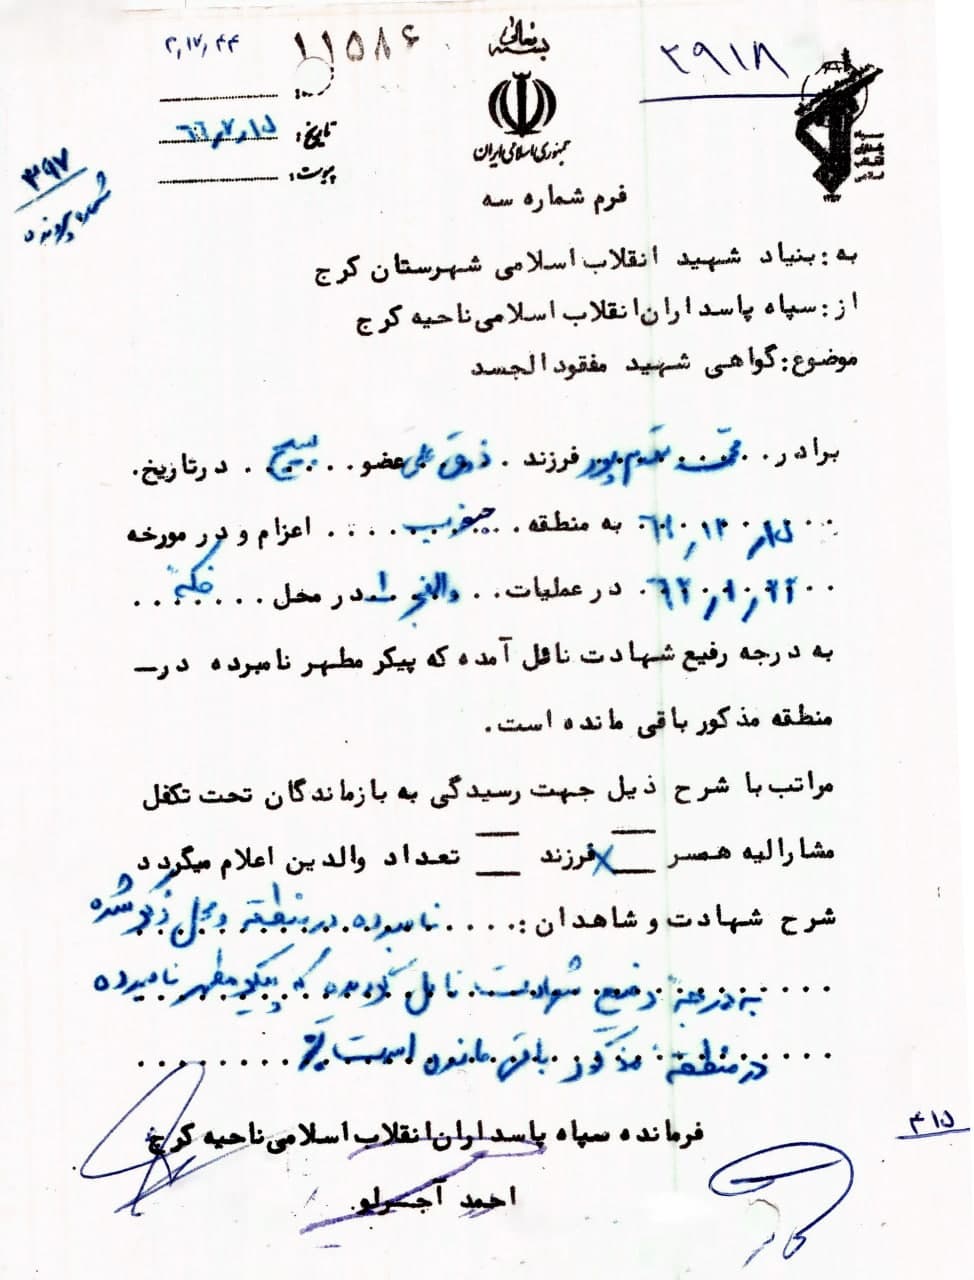 بسمه تعالی
۱۱۵۸۶
۲۹۱۸
۲,۱۷,۴۴
جمهوری اسلامی ایران
سپاه پاسداران انقلاب اسلامی
تاریخ: ۶۶,۷,۱۵
پیوست:
۳۹۷
شماره پرونده
فرم شماره سه
به: بنیاد شهید انقلاب اسلامی شهرستان کرج
از: سپاه پاسداران انقلاب اسلامی ناحیه کرج
موضوع: گواهی شهید مفقود الجسد
برادر . . . . فرزند . ذوق علی عضو . . . بسیج . . . درتاریخ .
به منطقه . . جنوب . . . . اعزام و در مورخه
۶۲,۱,۲۲ . در عملیات . . والفجر ۱ در محل . . فکه . .
به درجه رفیع شهادت نائل آمده که پیکر مطهر نامبرده در—
منطقه مذکور باقی مانده است.
مراتب با شرح ذیل جهت رسیدگی به بازماندگان تحت تکفل
مشارالیه همسر فرزند تعداد والدین اعلام میگردد
شرح شهادت و شاهدان : . . . . نامبرده در منطقه و محل ذکر شده
به درجه رفیع شهادت نائل گردیده که پیکر مطهر نامبرده
در منطقه مذکور باقی مانده است
فرمانده سپاه پاسداران انقلاب اسلامی ناحیه کرج
احمد آجرلو
۴۱۵